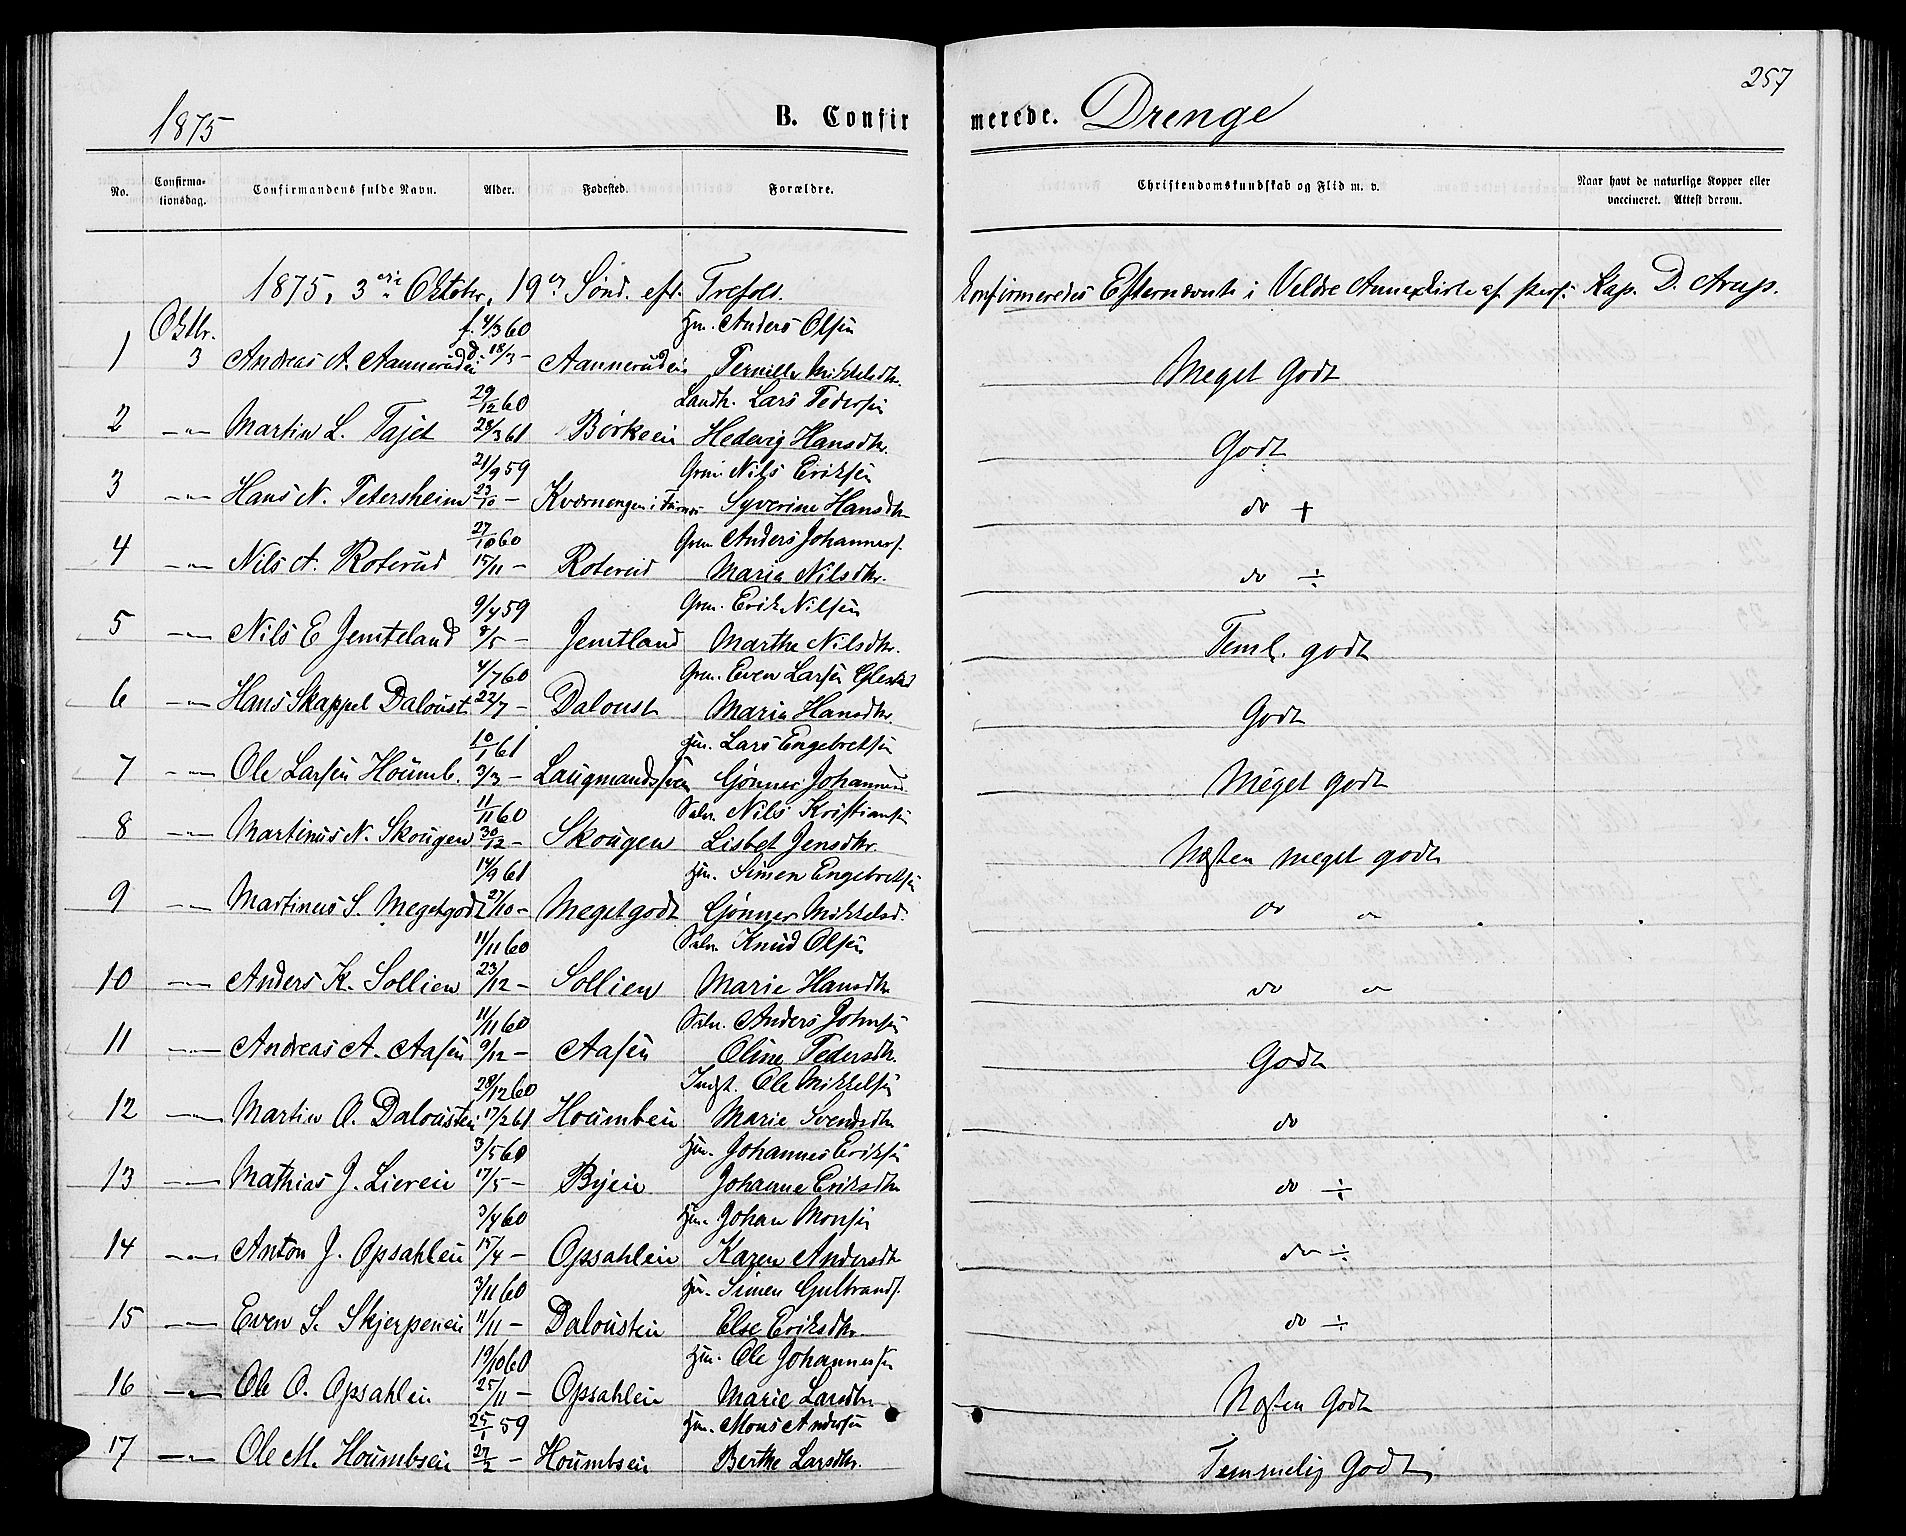 257
1875 B. Confirmerede. Drenge
No. Confirmationsdag. Confirmandens fulde Navn. Alder. Fødested. Forældre. Christendomskundskab og Flid m. v. Naar havt de naturlige Kopper eller vaccineret. Attest derom.
1875, 3die Oktober, 19de Sønd. eft. Trefold. Konfirmeredes Efternævnte i Veldre Annexkirke af pers. Kap. D. Arup.
Oktbr. f. 4/3 60 Hm. Anders Olsen
1 3 Andreas A. Aannerüdei d. 18/3 — Aannerüdei Pernille Mikkelsdtr. Meget Godt
29/12 60 Landh. Lars Pedersen
2 —"— Martin L. Tajet 28/3 61 Børkeei Hedevig Hansdtr. Godt
21/9 59 Grm. Nils Eriksen
3 —"— Hans N. Petersheim 23/10 — Kværnengen i Furnes Syverine Hansdtr do +
27/10 60 Grm. Anders Johanness.
4 —"— Nils A. Roterüd 15/11 — Roterüd Maria Nilsdtr. do ÷
9/4 59 Grm. Erik Nilsen
5 —"— Nils E Jemteland 8/5 — Jemtland Marthe Nilsdtr. Teml. godt
4/7 60 Grm. Even Larsen
6 —"— Hans Skappel Daloust 22/7 — Daloust Maria Hansdtr. Godt
10/1 61 Hm. Lars Engebretsen
7 —"— Ole Larsen Houmb. 3/3 — Gønner Johannesd. Meget godt
11/11 60 Selv. Nils Kristiansen
8 —"— Martinus N. Skougen 30/12 — Skougen Lisbet Jensdtr. Næsten meget godt
14/9 61 Hm. Simen Engebretsen
9 —"— Martinus S. Megetgodt 27/10 — Megetgodt Gønner Mikkelsd. do "
11/11 60 Selv. Knüd Olsen
10 —"— Anders K. Sollien 23/12 — Sollien Marie Hansdtr do "
11/11 60 Selv. Anders Johnsen
11 —"— Andreas A. Aasen 9/12 — Aasen Oline Pedersdtr. Godt
28/12 60 Indst. Ole Mikkelsen
12 —"— Martin O. Daloustei 17/2 61 Houmbei Marie Svendsdtr do
3/5 60 Hm. Johannes Eriksen
13 —"— Mathias J. Liereie 17/5 — Byeie Johanne Eriksdtr do ÷
3/4 60 Hm. Johan Monsen
14 —"— Anton J. Opsahleie 15/4 — Opsahleie Karen Andersdtr do ÷
3/11 60 Hm. Simen Gulbrands.
15 —"— Even S. Skjerpeneie 11/11 — Dalousteie Else Eriksdtr. do ÷
19/10 60 Hm. Ole Johannessen
16 —"— Ole O. Opsahleie 25/11 — Opsahleie Marie Larsdtr Næsten Godt
25/1 59 Hm. Mons Andersen
17 —"— Ole M. Houmbseie 27/2 — Houmbseie Berthe Larsdtr. Temmelig Godt